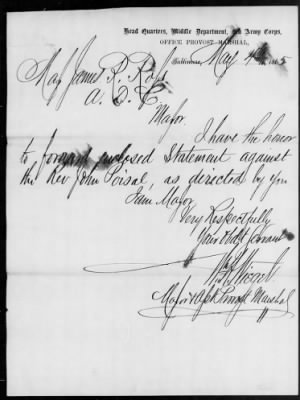 Head Quarters, Middle Department, 8th Army Corps,
OFFICE PROVOST MARSHAL,
Baltimore, May 4th 1865
Maj James R. Ross
A. D. C.
Major.
I have the honor
to forward enclosed Statement against
the Rev. John Poisal, as directed by you
I am Major
Very Respectfully
Your Obdt Servant
Wm H Wiegel
Major & Asst Provost Marshal